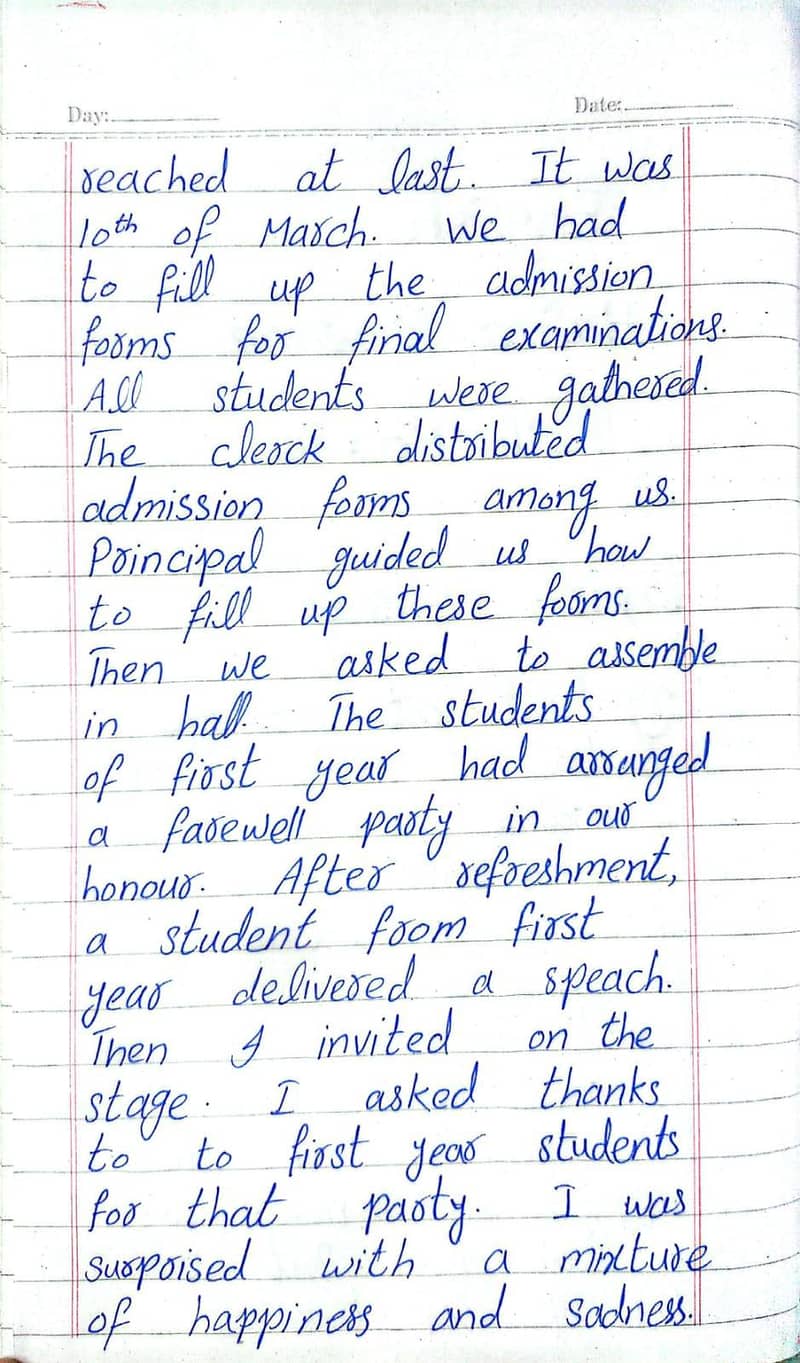 Day:
Date:
reached at last. It was
10th of March. We had
to fill up the admission
forms for final examinations.
All students were gathered.
The clerck distributed
admission forms among us.
Principal guided us how
to fill up these forms.
Then we asked to assemble
in hall. The students
of first year had arranged
a farewell party in our
honour. After refreshment,
a student from first
year delivered a speach.
Then I invited on the
stage. I asked thanks
to to first year students
for that party. I was
surprised with a mixture
of happiness and sadness.